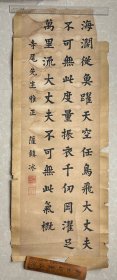 海濶從魚躍天空任鳥飛大丈夫
不可無此度量振衣千仞岡濯足
萬里流大丈夫不可無此氣概
壽崑先生雅正 薩鎮冰